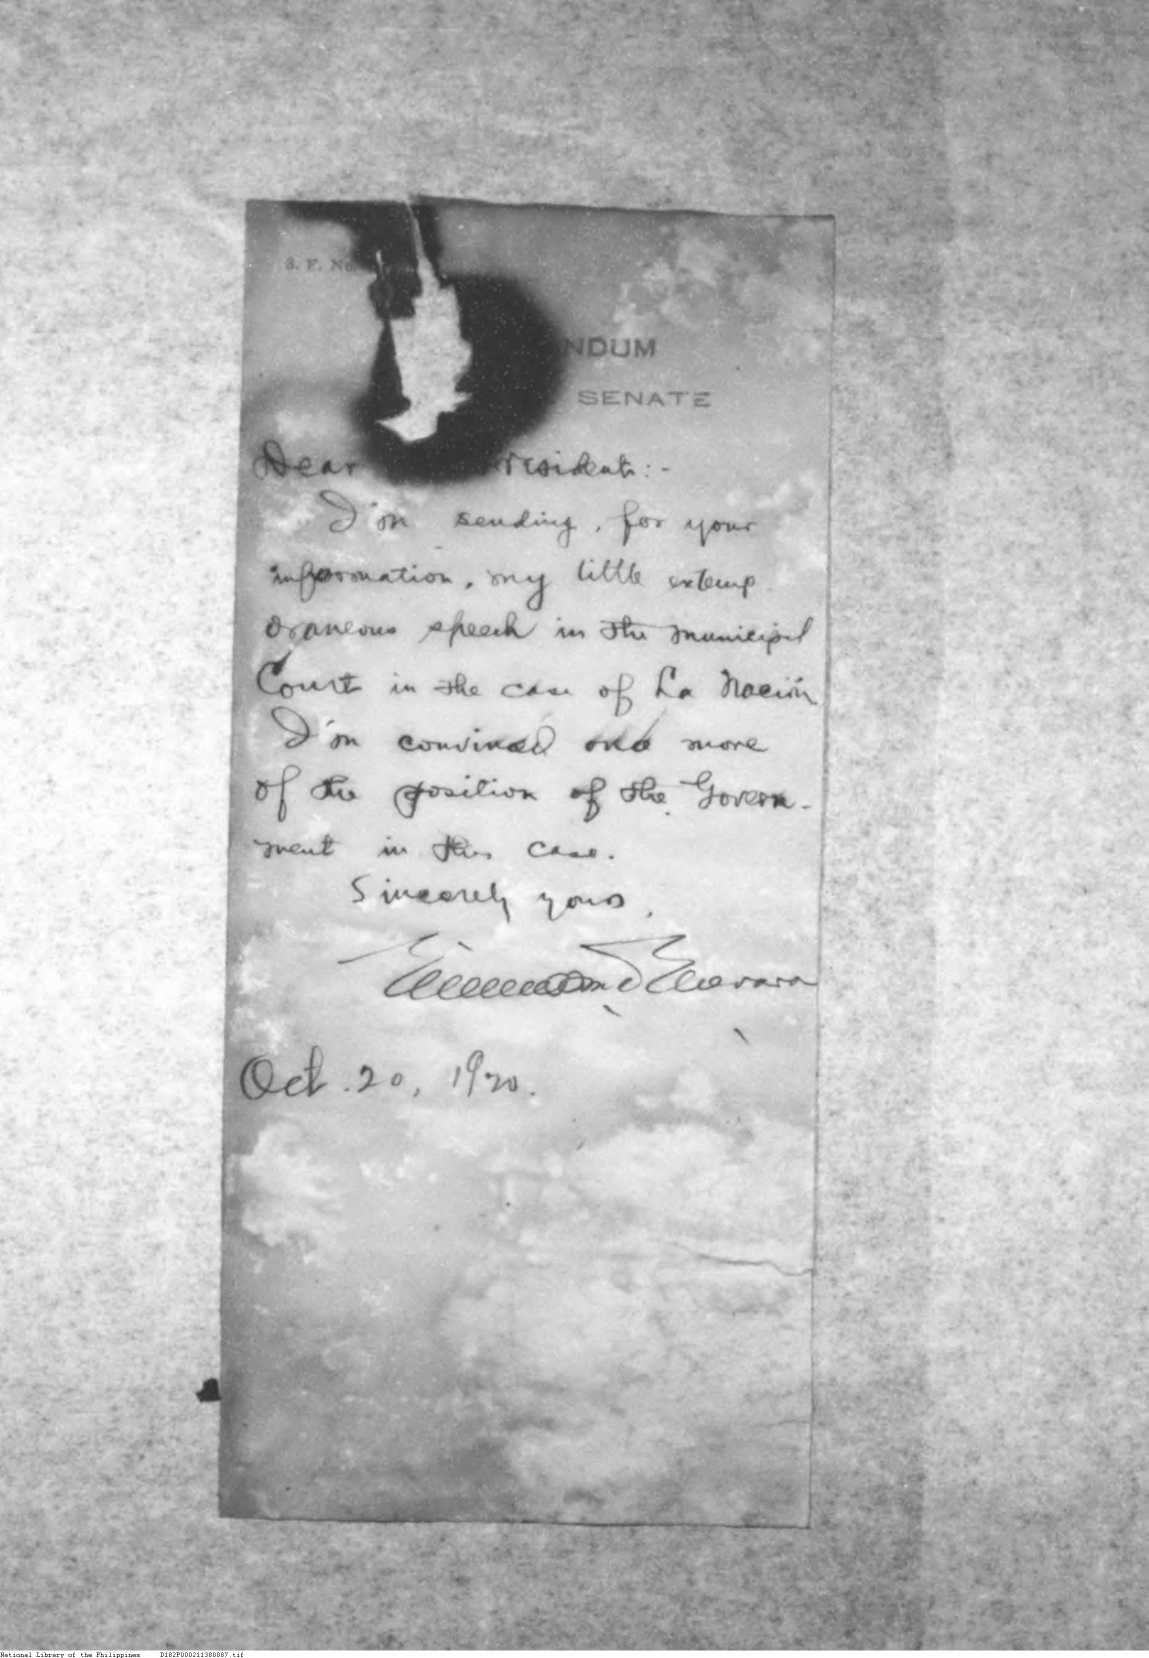 S. F. No.
NDUM
SENATE
Dear resident:-
I'm sending, for your
information, my little extemp
oraneous speech in the municipal
Court in the case of La Nación
I'm convinced once more
of the position of the Govern-
ment in this case.
Sincerely yours,
Guevara
Oct. 20, 1920.
National Library of the Philippines D182P000211380087.tif